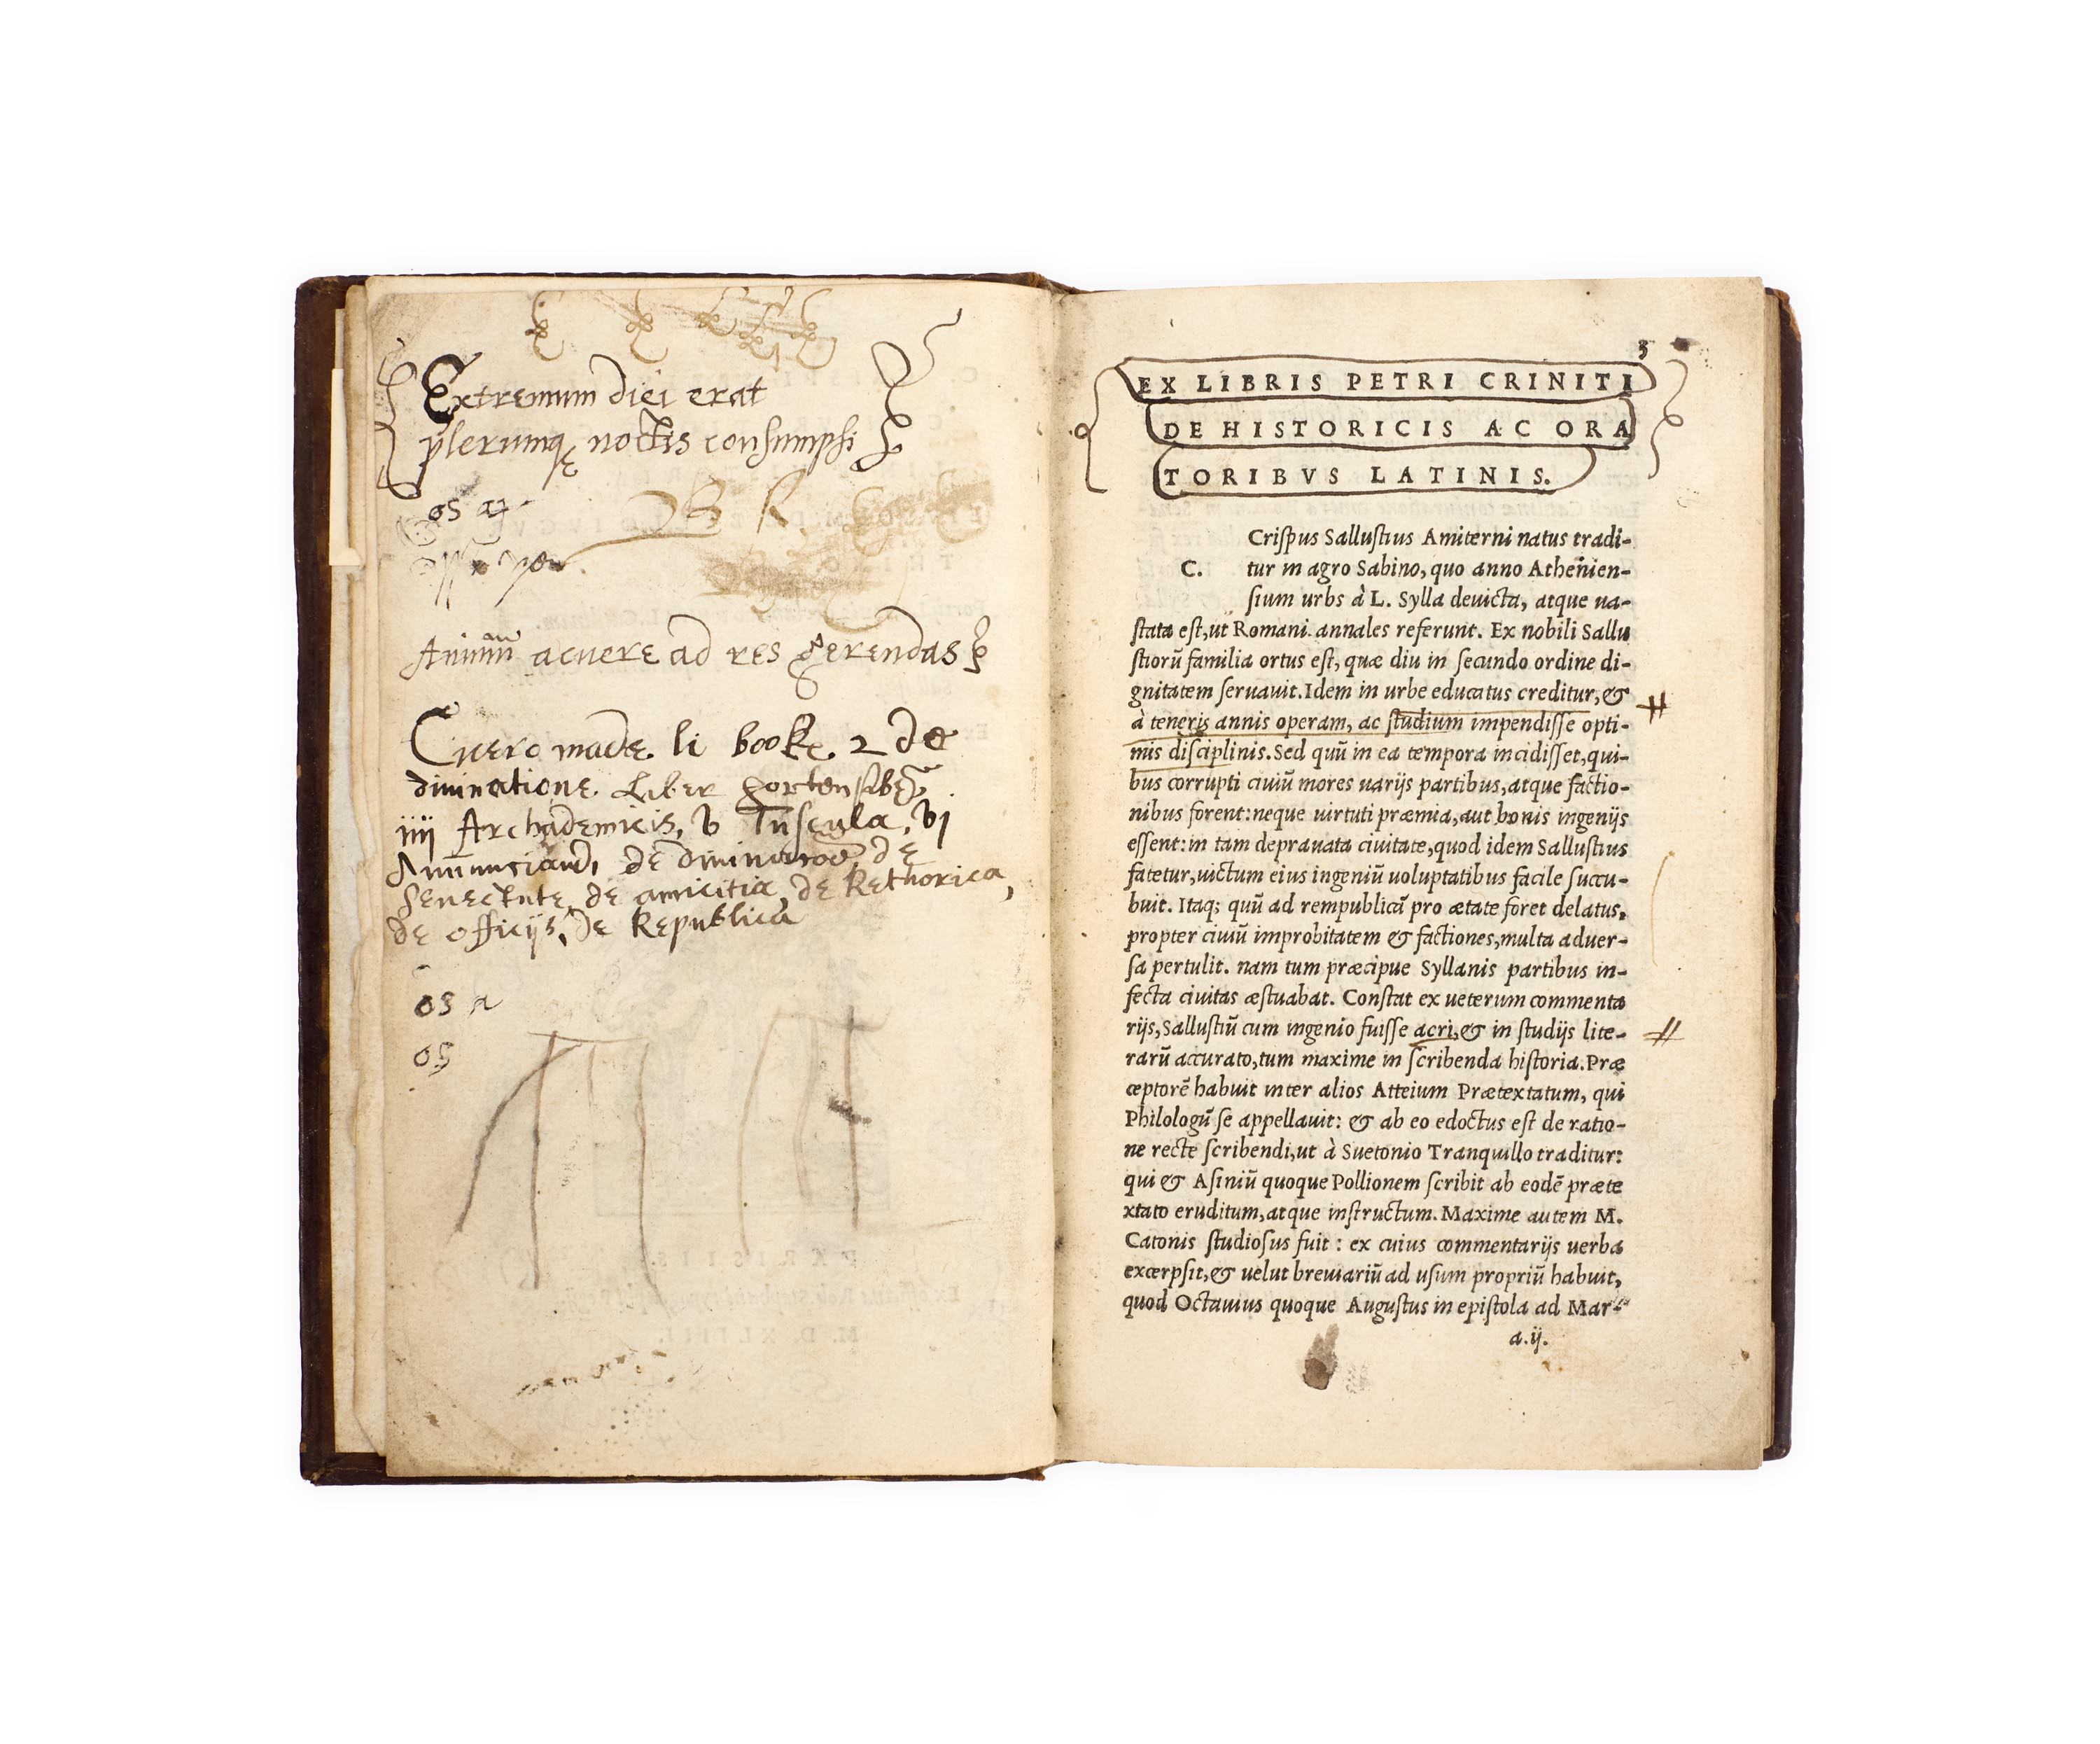 Extremum diei erat
plerumqȝ noctis consumpsi
os
B R
Animum acuere ad res gerendas
Cicero made li booke 2 de
diuinatione. Liber hortensibȝ
iiij Archademicis, v Tuscula, vj
de
senectute, de amicitia, de Rethorica,
de officijs, De Republica
os a
os
3
EX LIBRIS PETRI CRINITI
DE HISTORICIS AC ORA
TORIBVS LATINIS.
Criſpus Salluſtius Amiterni natus tradi-
C. tur in agro Sabino, quo anno Athenien-
ſium urbs à L. Sylla deuicta, atque ua-
ſtata eſt, ut Romani annales referunt. Ex nobili Sallu
ſtiorū familia ortus eſt, quæ diu in ſecundo ordine di-
gnitatem ſeruauit. Idem in urbe educatus creditur, &
à teneris annis operam, ac ſtudium impendiſſe opti-
mis diſciplinis. Sed quū in ea tempora incidiſſet, qui-
bus corrupti ciuiū mores uarijs partibus, atque factio-
nibus forent: neque uirtuti præmia, aut bonis ingenijs
eſſent: in tam deprauata ciuitate, quod idem Salluſtius
fatetur, uictum eius ingeniū uoluptatibus facile ſuccu-
buit. Itaq; quū ad rempublicā pro ætate foret delatus,
propter ciuiū improbitatem & factiones, multa aduer-
ſa pertulit. nam tum præcipue Syllanis partibus in-
fecta ciuitas æſtuabat. Conſtat ex ueterum commenta
rijs, Salluſtiū cum ingenio fuiſſe acri, & in ſtudijs lite-
rarū accurato, tum maxime in ſcribenda hiſtoria. Præ
ceptorē habuit inter alios Atteium Prætextatum, qui
Philologū ſe appellauit: & ab eo edoctus eſt de ratio-
ne recte ſcribendi, ut à Suetonio Tranquillo traditur:
qui & Aſiniū quoque Pollionem ſcribit ab eodē præte
xtato eruditum, atque inſtructum. Maxime autem M.
Catonis ſtudioſus fuit: ex cuius commentarijs uerba
excerpſit, & uelut breuiariū ad uſum propriū habuit,
quod Octauius quoque Auguſtus in epiſtola ad Mar-
a.ij.